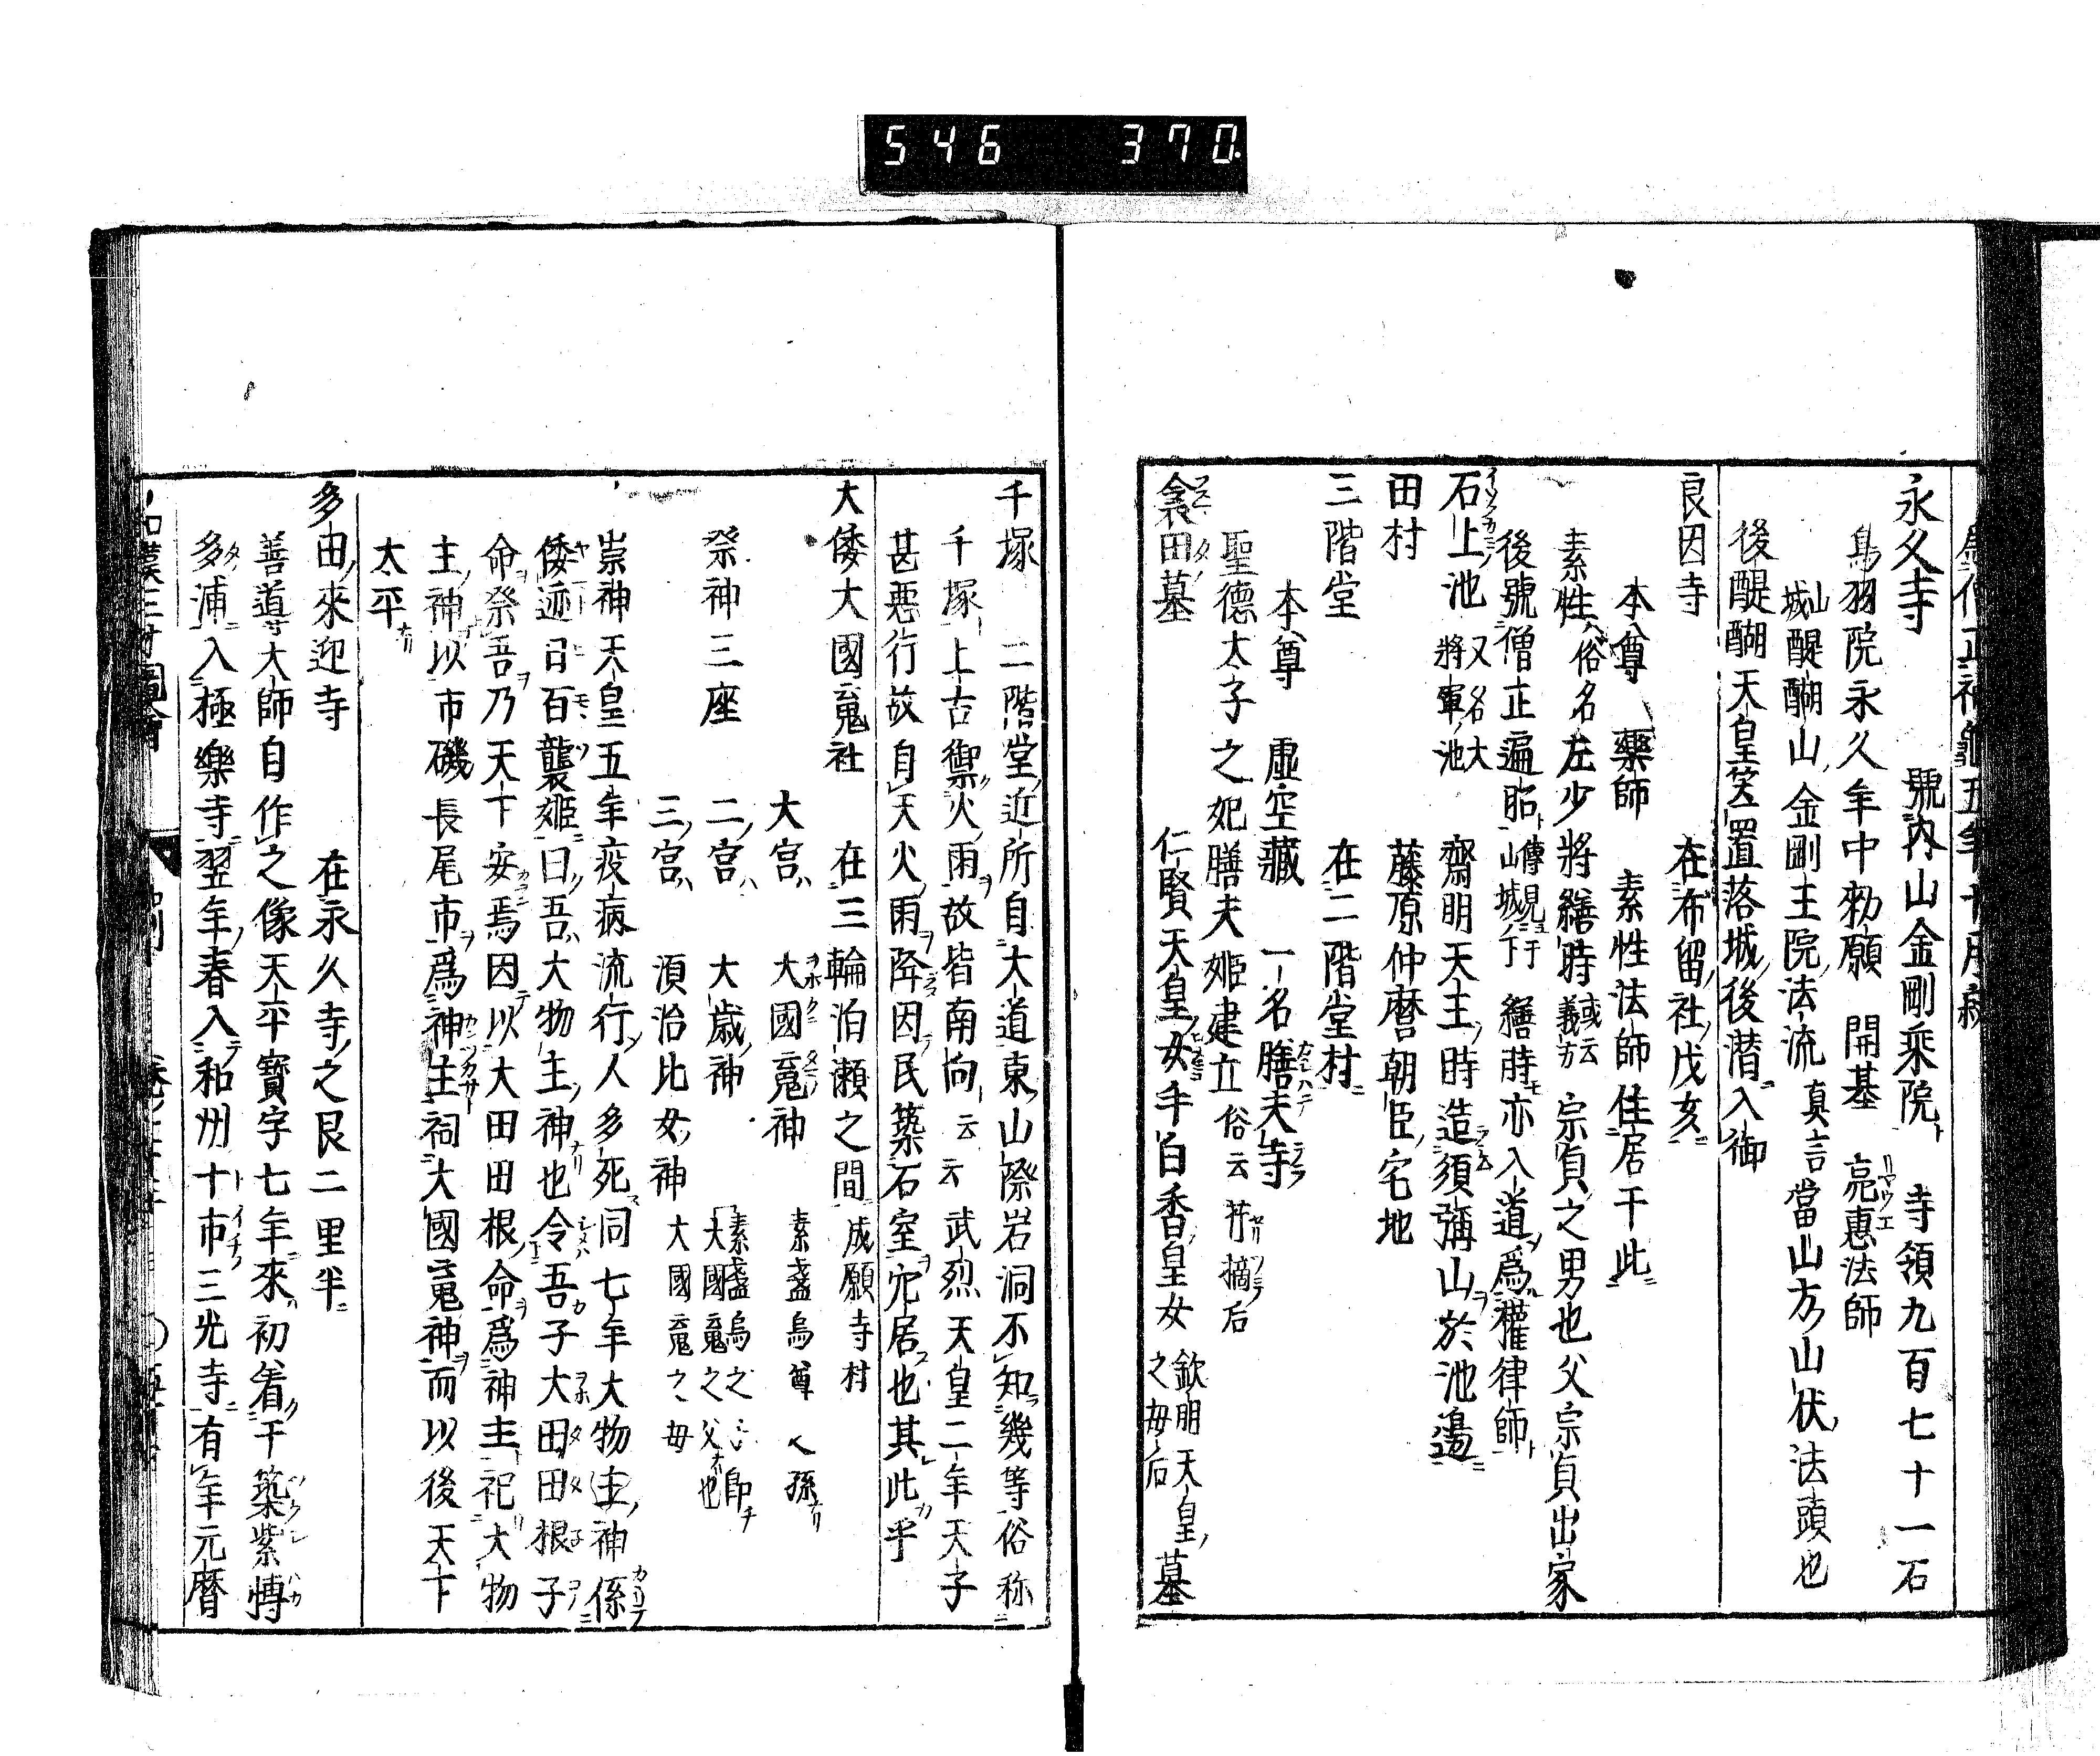 546 370
永久寺 號内山金剛乘院 寺領九百七十一石
鳥羽院永久年中勅願 開基 亮惠法師
山城醍醐山金剛主院法流 真言當山方山伏法頭也
後醍醐天皇笠置落城後潜入御
良因寺 在布留社戊亥
本尊 藥師 素性法師住居于此
素性俗名左少將繕時或云義方 宗貞之男也父宗貞出家
後號僧正遍昭傳見于山城下 繕時亦入道爲權律師
石上池 又名大將軍池 齋明天主時造須彌山於池邊
田村 藤原仲麿朝臣宅地
三階堂 在二階堂村
本尊 虚空藏 一名膳夫寺
聖德太子之妃膳夫姬建立俗云芹摘后
衾田墓 仁賢天皇女手白香皇女 欽明天皇之母后墓
千塚 二階堂近所自大道東山際岩洞不知幾等俗称
千塚上古禦火雨故皆南向云云 武烈天皇二年天子
甚悪行故自天火雨降因民築石室穴居也其此乎
大倭大國䰟社 在三輪泊瀬之間 成願寺村
大宮 大國䰟神 素盞烏尊ノ孫
祭神三座 二宮 大歲神 素盞烏之子即大國䰟之父也
三宮 須治比女神 大國䰟之母
崇神天皇五年疫病流行人多死同七年大物主神係
倭迹日百襲姬曰吾大物主神也令吾子大田田根子
命祭吾乃天下安焉因以大田田根命爲神主祀大物
主神以市磯長尾市爲神主祠大國䰟神而以後天下
太平
多田來迎寺 在永久寺之艮二里半
善道大師自作之像天平寶字七年來初着于築紫博
多浦入極樂寺翌年春入和州十市三光寺有年元暦